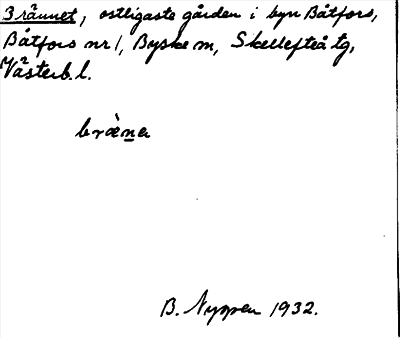 Brännet, ostligaste gården i byn Båtfors,
Båtfors nr 1, Byske sn, Skellefteå tg,
Västerb. l.
bræ̀na
B. Nyman 1932.